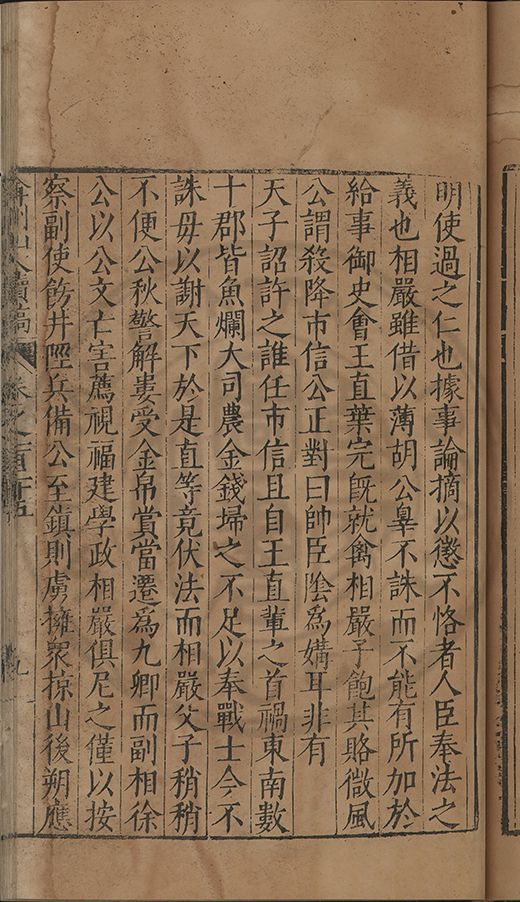 明使過之仁也據事論摘以懲不恪者人臣奉法之
義也相嚴雖借以薄胡公辠不誅而不能有所加於
給事御史會王直葉完旣就禽相嚴子飽其賂微風
公謂殺降市信公正對曰帥臣陰爲媾耳非有
天子詔許之誰任市信且自王直輩之首禍東南數
十郡皆魚爛大司農金錢埽之不足以奉戰士今不
誅毋以謝天下於是直等竟伏法而相嚴父子稍稍
不便公秋警解婁受金帛賞當遷爲九卿而副相徐
公以公文亡害薦視福建學政相嚴俱尼之僅以按
察副使飭井陘兵備公至鎮則虜擁衆掠山後朔應
山人續稿 卷之一百
九